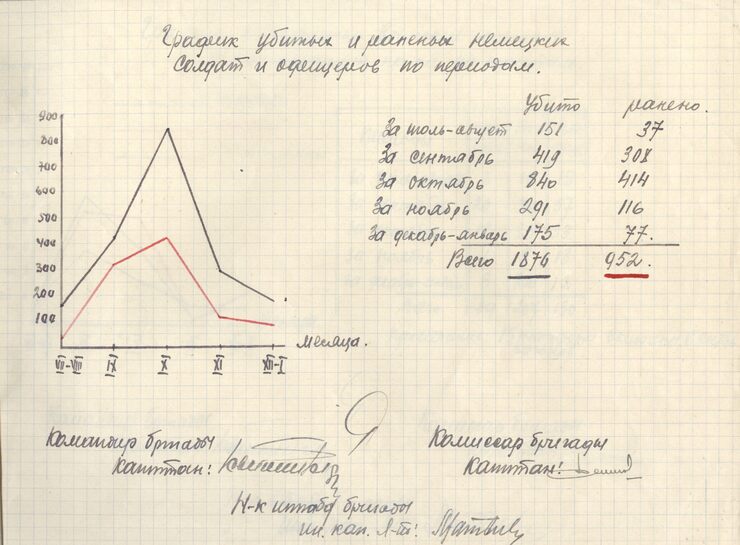 График убитых и раненых немецких
солдат и офицеров по периодам.
убито ранено.
За июль-август 151 37
За сентябрь 419 308
За октябрь 840 414
За ноябрь 291 116
За декабрь-январь 175 77.
Всего 1876 952.
900
800
700
600
500
400
300
200
100
месяца.
VII-VIII IX X XI XII-I
Командир бригады
капитан:
Комиссар бригады
Капитан:
Н-к штаба бригады
ин. кап. Л-т: